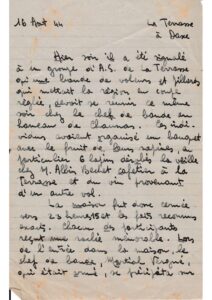 16 Aout 44 La Terrasse
à Daxe
Hier soir il a été signalé
à un groupe d'A.S. de La Terrasse
qu'une bande de voleurs et pillards
qui mettait la région en coupe
réglée, devait se réunir ce même
soir chez le chef de bande au
hameau de Chaumas. Les indi-
vidus avaient organisé un banquet
avec le fruit de leurs rapines, en
particulier 6 lapins divolés la veille
chez M. Albin Bechet cafetier à la
Terrasse et du vin provenant
d'un autre vol.
La maison fut donc cernée
vers 23 heures 15 et les faits reconnus
exacts. Chacun des participants
reçut une raclée mémorable. Lors
de l'entrée dans la maison, le
chef de bande, Martial
qui était armé, se précipita sur